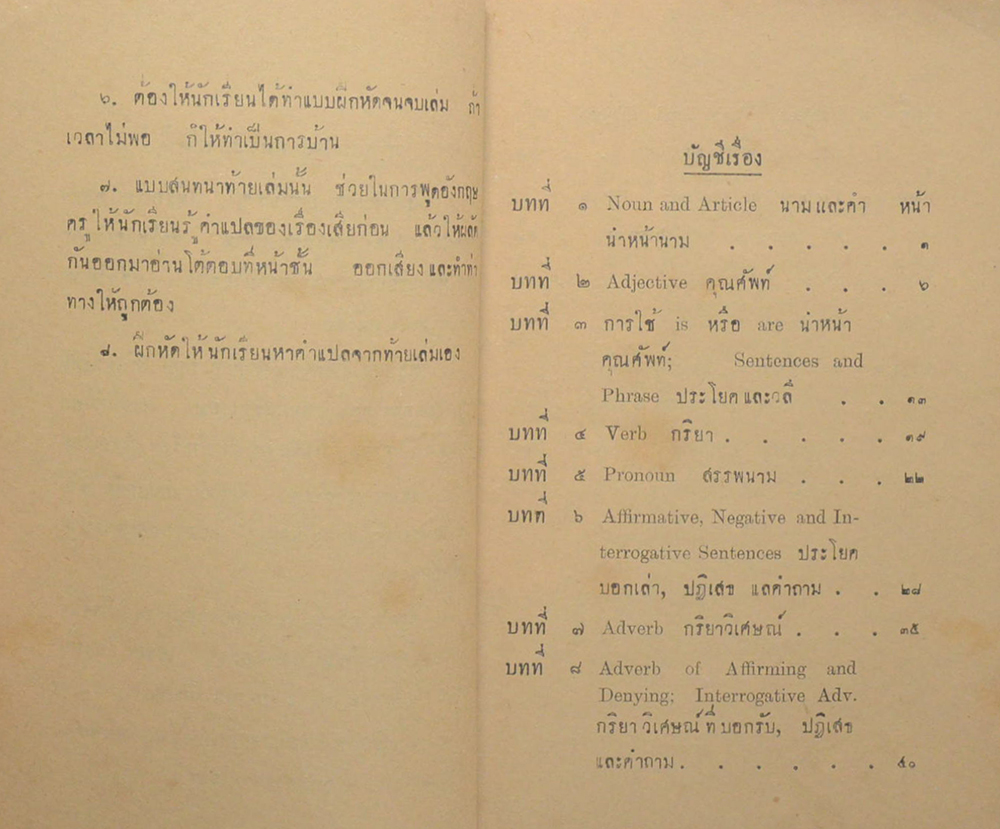 ๖. ต้องให้นักเรียนได้ทำแบบฝึกหัดจนจบเล่ม ถ้า
เวลาไม่พอ ก็ให้ทำเป็นการบ้าน
๗. แบบสนทนาท้ายเล่มนั้น ช่วยในการพูดอังกฤษ
ครูให้นักเรียนรู้คำแปลของเรื่องเสียก่อน แล้วให้ผลัด
กันออกมาอ่านโต้ตอบที่หน้าชั้น ออกเสียงและทำท่า
ทางให้ถูกต้อง
๘. ฝึกหัดให้นักเรียนหาคำแปลจากท้ายเล่มเอง
บัญชีเรื่อง
บทที่ ๑ Noun and Article นามและคำ หน้า
นำหน้านาม . . . . . ๑
บทที่ ๒ Adjective คุณศัพท์ . . . ๖
บทที่ ๓ การใช้ is หรือ are นำหน้า
คุณศัพท์; Sentences and
Phrase ประโยคและวลี . . ๑๓
บทที่ ๔ Verb กริยา . . . . . ๑๙
บทที่ ๕ Pronoun สรรพนาม . . . ๒๒
บทที่ ๖ Affirmative, Negative and In-
terrogative Sentences ประโยค
บอกเล่า, ปฏิเสข แลคำถาม . . ๒๘
บทที่ ๗ Adverb กริยาวิเศษณ์ . . . . ๓๕
บทที่ ๘ Adverb of Affirming and
Denying; Interrogative Adv.
กริยาวิเศษณ์ที่บอกรับ, ปฏิเสข
และคำถาม . . . . . . ๔๐